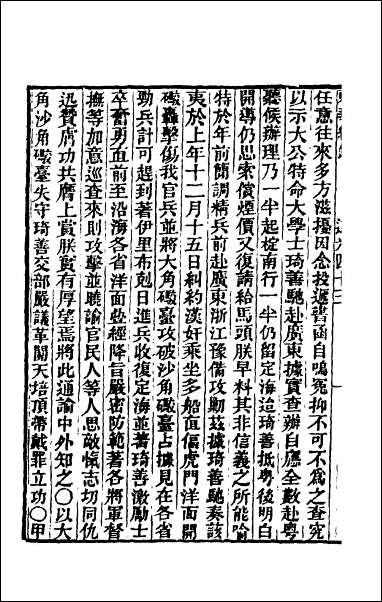 任意往來多方滋擾因念投遞書函自鳴冤抑不可不爲之查究
以示大公特命大學士琦善馳赴廣東據實查辦自應全數赴粵
聽候辦理乃一半起椗南行一半仍留定海迨琦善抵粵後明白
開導仍思索償煙價又復請給馬頭朕早料其非信義之所能喻
特於年前簡調精兵前赴廣東浙江豫備攻勦茲據琦善馳奏該
夷於上年十二月十五日糾約漢奸乘坐多船直偪虎門洋面開
礮轟擊傷我官兵並將大角礮臺攻破沙角礮臺占據見在各省
勁兵計可趕到著伊里布剋日進兵收復定海並著琦善激勵士
卒奮勇直前至沿海各省洋面疊經降旨嚴密防範著各將軍督
撫等加意巡查來則攻擊並曉諭官民人等人思敵愾志切同仇
迅贊膚功共膺上賞朕實有厚望焉將此通諭中外知之〇以大
角沙角礮臺失守琦善交部嚴議革關天培頂帶戴罪立功〇甲